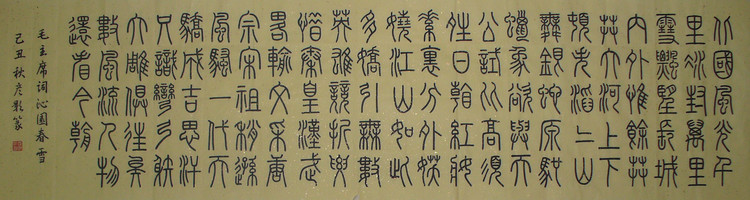 北國風光千
里冰封萬里
雪飄望長城
内外惟餘莽
莽大河上下
頓失滔二山
舞銀蛇原馳
蠟象欲與天
公試比高須
晴日看紅妝
素裹分外妖
嬈江山如此
多嬌引無數
英雄競折腰
惜秦皇漢武
略輸文采唐
宗宋祖稍遜
風騷一代天
驕成吉思汗
只識彎弓射
大雕俱往矣
數風流人物
還看今朝
毛主席詞沁園春雪
己丑秋彦篆